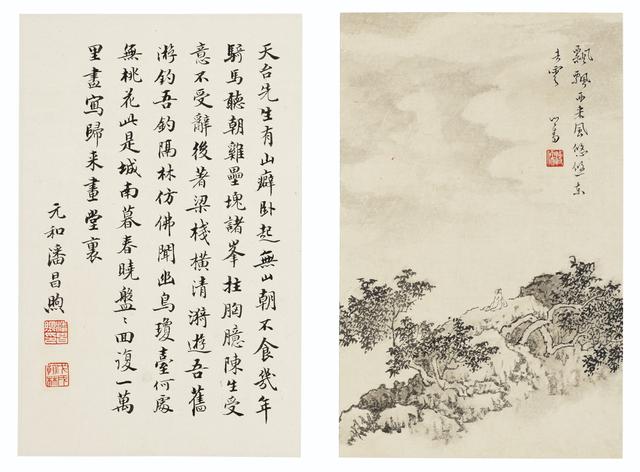 飄飄西来風悠悠東
去雲
心畬
天台先生有山癖卧起無山朝不食幾年
騎馬聽朝雞壘塊諸峯拄胸臆陳生受
意不受辭後著梁棧橫清漪遊吾舊
游釣吾釣隔林仿佛聞幽鳥瓊臺何處
無桃花此是城南暮春曉盤〻回復一萬
里畫寫歸来畫堂裏
元和潘昌煦